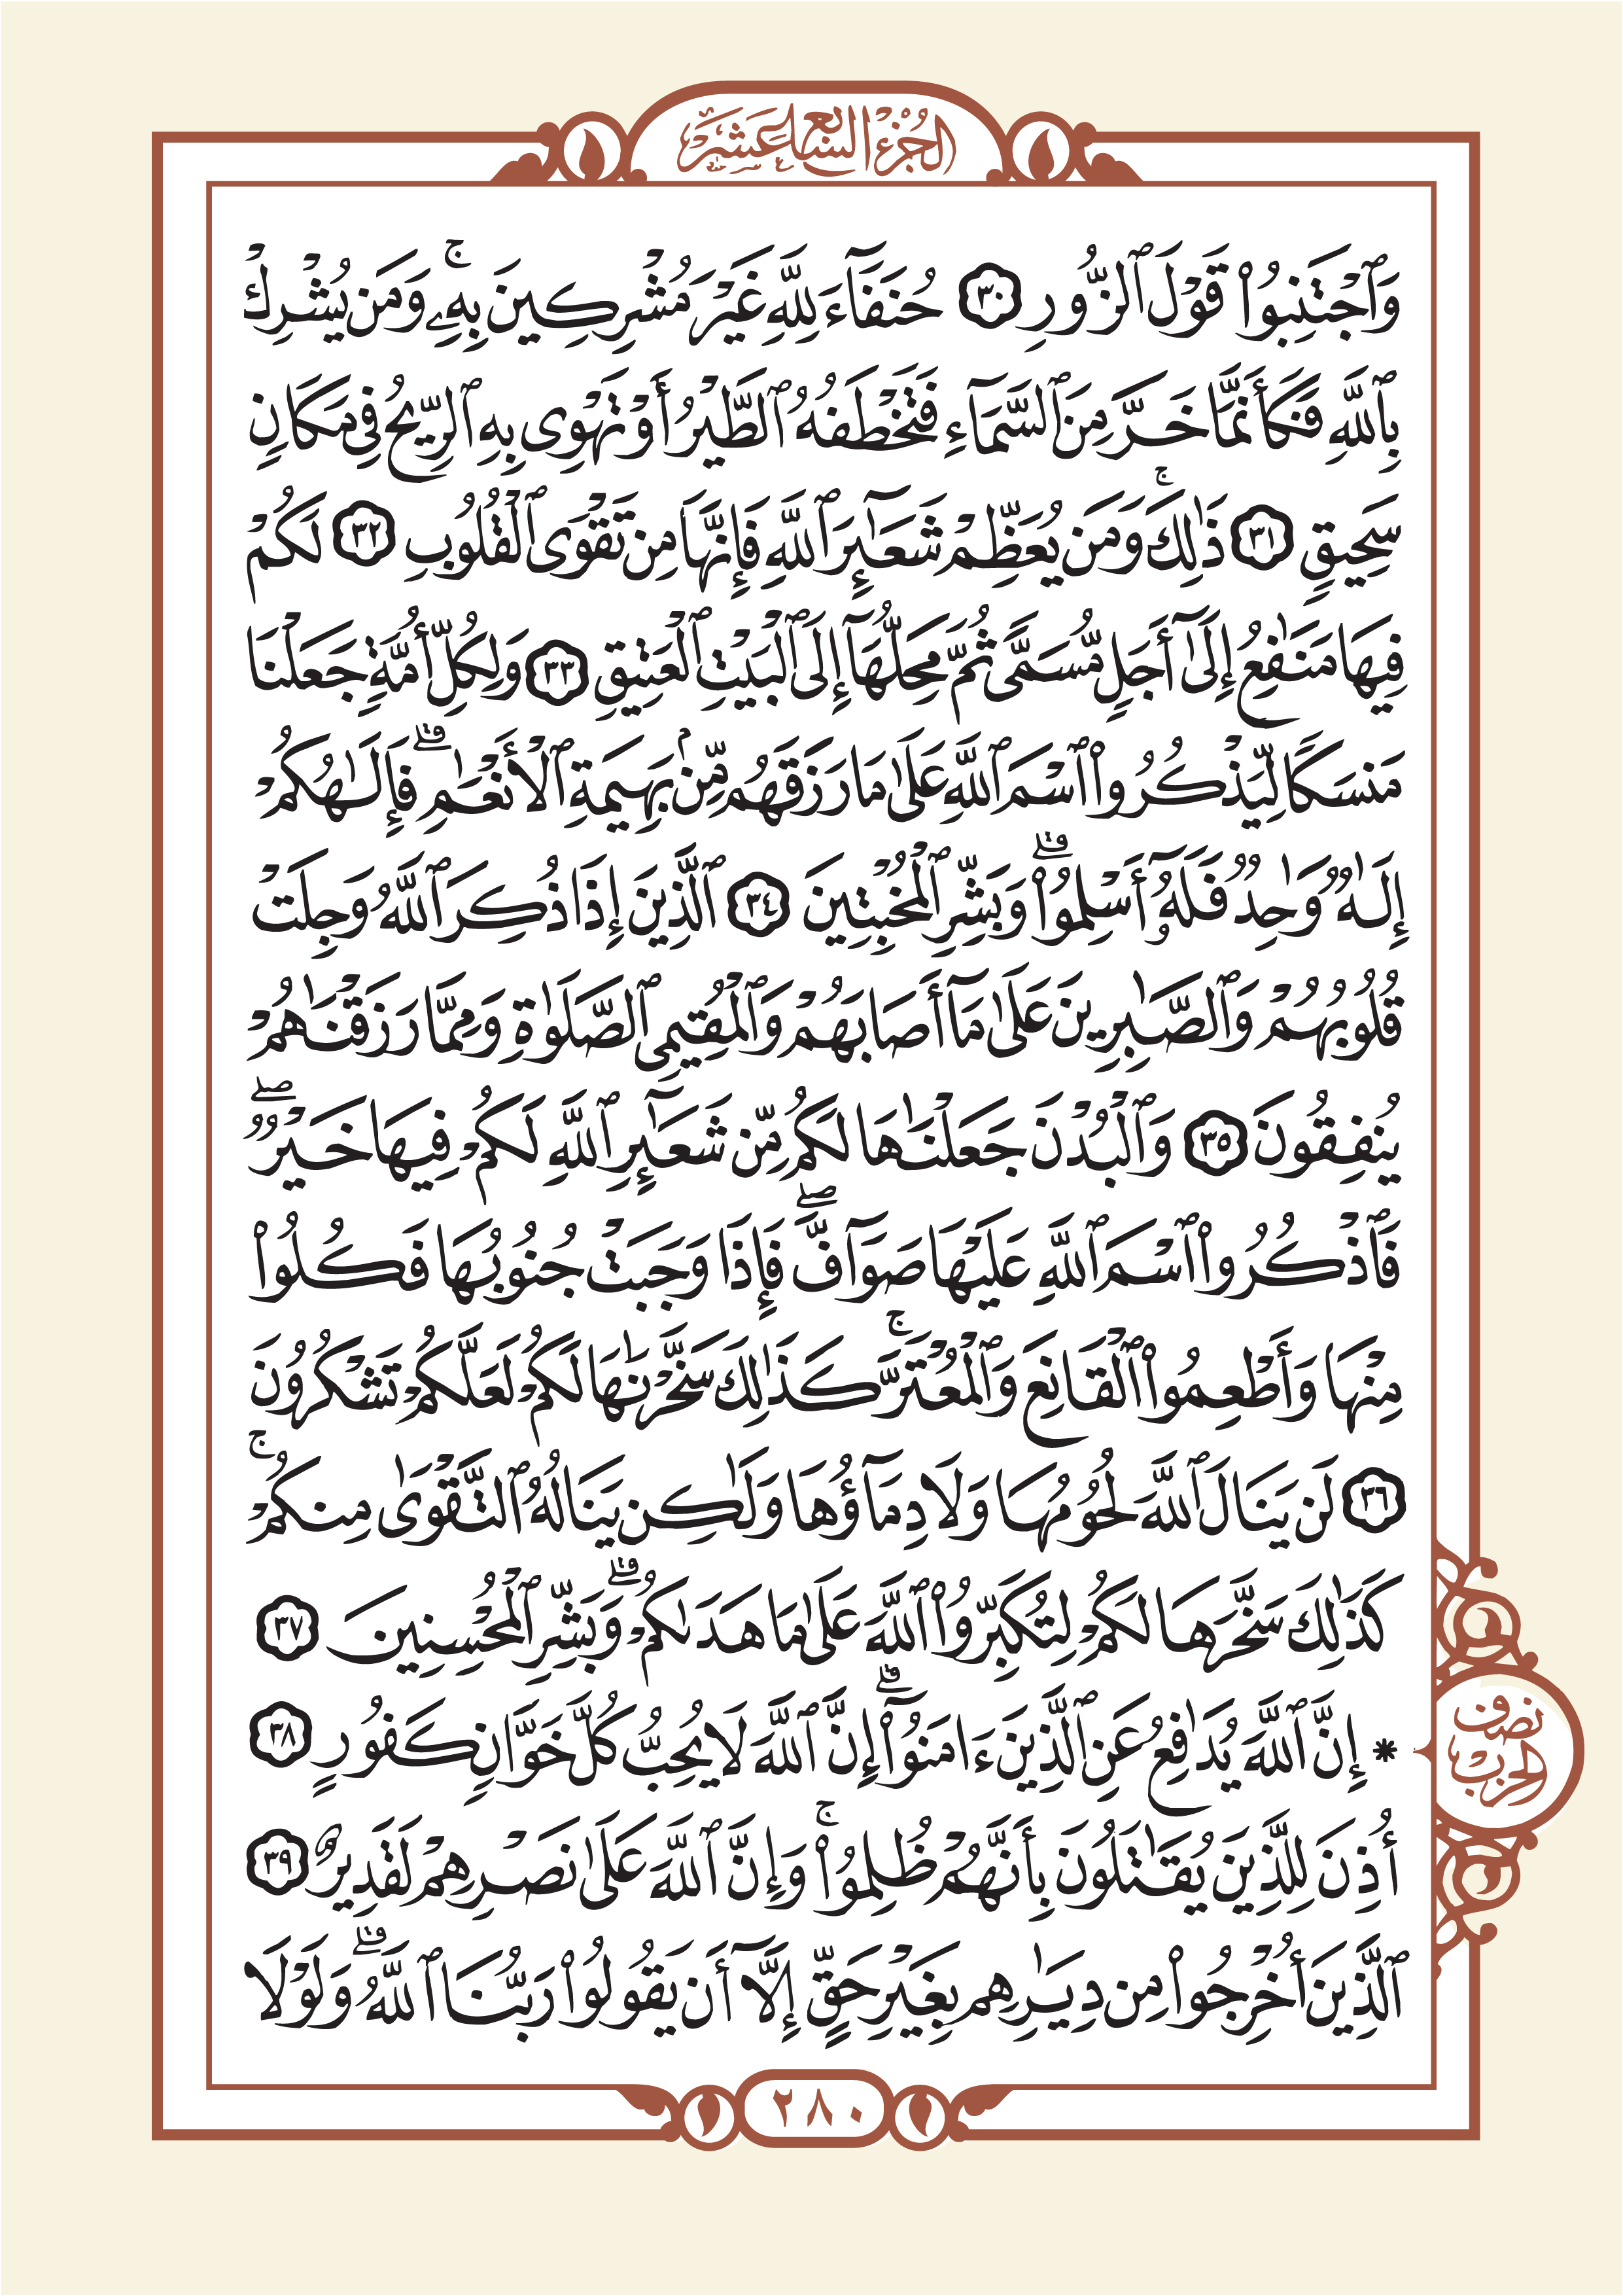 الجزء السابع عشر
وَٱجْتَنِبُوا۟ قَوْلَ ٱلزُّورِ ٣٠ حُنَفَآءَ لِلَّهِ غَيْرَ مُشْرِكِينَ بِهِۦ ۚ وَمَن يُشْرِكْ
بِٱللَّهِ فَكَأَنَّمَا خَرَّ مِنَ ٱلسَّمَآءِ فَتَخْطَفُهُ ٱلطَّيْرُ أَوْ تَهْوِى بِهِ ٱلرِّيحُ فِى مَكَانٍ
سَحِيقٍ ٣١ ذَٰلِكَ ۚ وَمَن يُعَظِّمْ شَعَـٰٓئِرَ ٱللَّهِ فَإِنَّهَا مِن تَقْوَى ٱلْقُلُوبِ ٣٢ لَكُمْ
فِيهَا مَنَـٰفِعُ إِلَىٰٓ أَجَلٍ مُّسَمًّى ثُمَّ مَحِلُّهَآ إِلَى ٱلْبَيْتِ ٱلْعَتِيقِ ٣٣ وَلِكُلِّ أُمَّةٍ جَعَلْنَا
مَنسَكًا لِّيَذْكُرُوا۟ ٱسْمَ ٱللَّهِ عَلَىٰ مَا رَزَقَهُم مِّنۢ بَهِيمَةِ ٱلْأَنْعَـٰمِ ۗ فَإِلَـٰهُكُمْ
إِلَـٰهٌ وَٰحِدٌ فَلَهُۥٓ أَسْلِمُوا۟ ۗ وَبَشِّرِ ٱلْمُخْبِتِينَ ٣٤ ٱلَّذِينَ إِذَا ذُكِرَ ٱللَّهُ وَجِلَتْ
قُلُوبُهُمْ وَٱلصَّـٰبِرِينَ عَلَىٰ مَآ أَصَابَهُمْ وَٱلْمُقِيمِى ٱلصَّلَوٰةِ وَمِمَّا رَزَقْنَـٰهُمْ
يُنفِقُونَ ٣٥ وَٱلْبُدْنَ جَعَلْنَـٰهَا لَكُم مِّن شَعَـٰٓئِرِ ٱللَّهِ لَكُمْ فِيهَا خَيْرٌ ۖ
فَٱذْكُرُوا۟ ٱسْمَ ٱللَّهِ عَلَيْهَا صَوَآفَّ ۖ فَإِذَا وَجَبَتْ جُنُوبُهَا فَكُلُوا۟
مِنْهَا وَأَطْعِمُوا۟ ٱلْقَانِعَ وَٱلْمُعْتَرَّ ۚ كَذَٰلِكَ سَخَّرْنَـٰهَا لَكُمْ لَعَلَّكُمْ تَشْكُرُونَ
٣٦ لَن يَنَالَ ٱللَّهَ لُحُومُهَا وَلَا دِمَآؤُهَا وَلَـٰكِن يَنَالُهُ ٱلتَّقْوَىٰ مِنكُمْ ۚ
كَذَٰلِكَ سَخَّرَهَا لَكُمْ لِتُكَبِّرُوا۟ ٱللَّهَ عَلَىٰ مَا هَدَىٰكُمْ ۗ وَبَشِّرِ ٱلْمُحْسِنِينَ ٣٧
* إِنَّ ٱللَّهَ يُدَٰفِعُ عَنِ ٱلَّذِينَ ءَامَنُوٓا۟ ۗ إِنَّ ٱللَّهَ لَا يُحِبُّ كُلَّ خَوَّانٍ كَفُورٍ ٣٨
أُذِنَ لِلَّذِينَ يُقَـٰتَلُونَ بِأَنَّهُمْ ظُلِمُوا۟ ۚ وَإِنَّ ٱللَّهَ عَلَىٰ نَصْرِهِمْ لَقَدِيرٌ ٣٩
ٱلَّذِينَ أُخْرِجُوا۟ مِن دِيَـٰرِهِم بِغَيْرِ حَقٍّ إِلَّآ أَن يَقُولُوا۟ رَبُّنَا ٱللَّهُ ۗ وَلَوْلَا
نصف
الحزب
٢٨٠